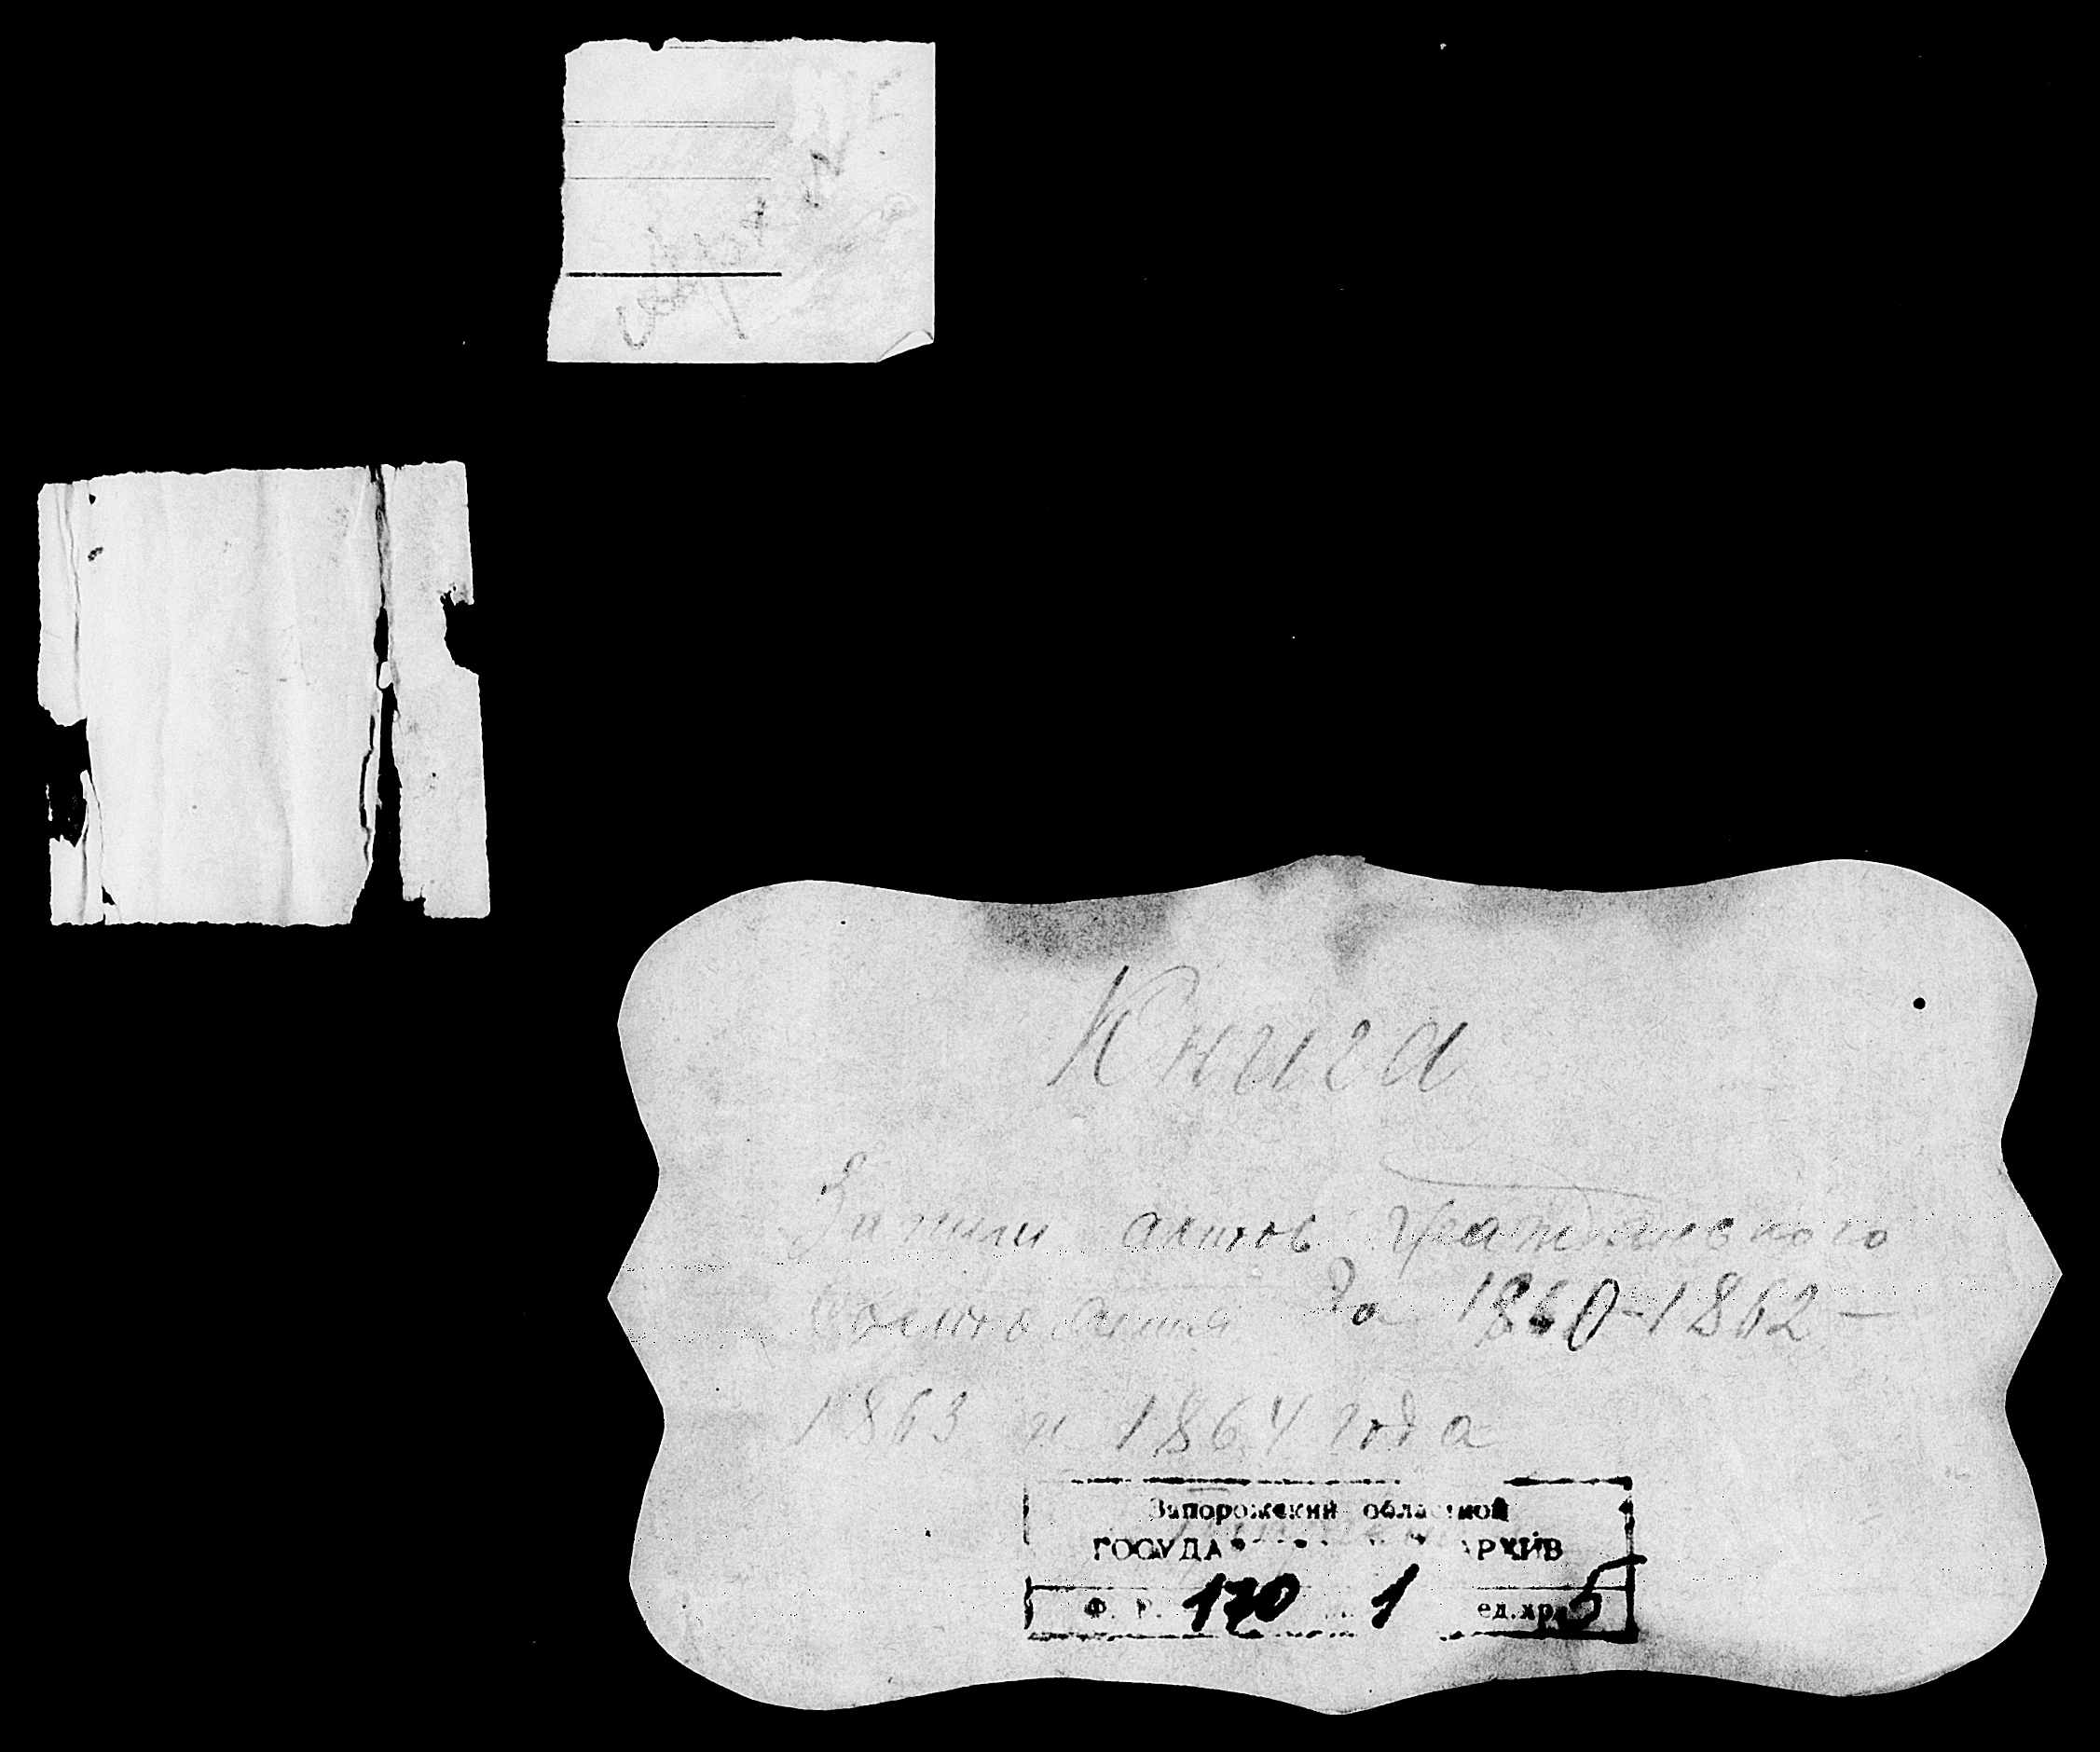 Книга
Записи актов гражданского
состояния за 1860-1862-
1863 и 1864 года
Запорожский областной
ГОСУДА АРХИВ
Ф. Р. 170 1 ед.хр. 5